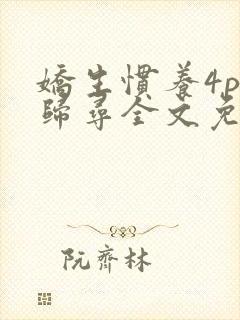 嬌生慣養4p
歸尋全文免
阮齊林